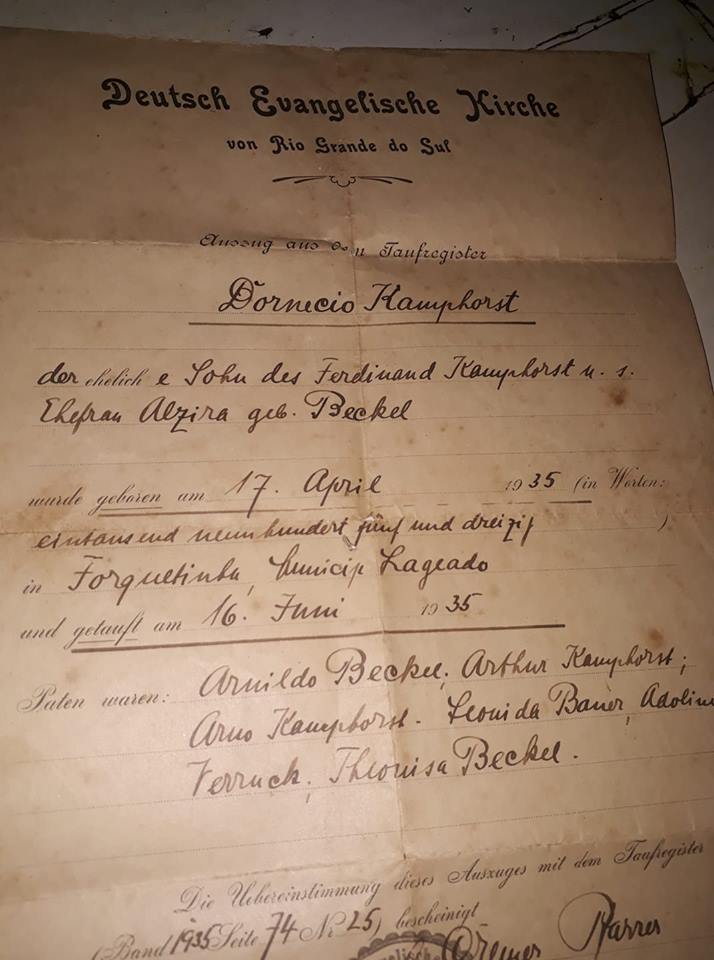 Deutsch Evangelische Kirche
von Rio Grande do Sul
Auszug aus dem Taufregister
Dornecio Kamphorst
der ehelich e Sohn des Ferdinand Kamphorst u. s.
Ehefrau Alzira geb. Beckel
wurde geboren am 17. April 1935 (in Worten:
eintausend neunhundert fünf und dreizig )
in Forquetinha, Municip Lageado
und getauft am 16. Juni 1935
Paten waren: Arnildo Beckel; Arthur Kamphorst;
Arno Kamphorst. Leonida Bauer, Adoline
Verruck; Theonisa Beckel.
Die Uebereinstimmung dieses Auszuges mit dem Taufregister
(Band 1935 Seite 74 No 25) bescheinigt
Pfarrer